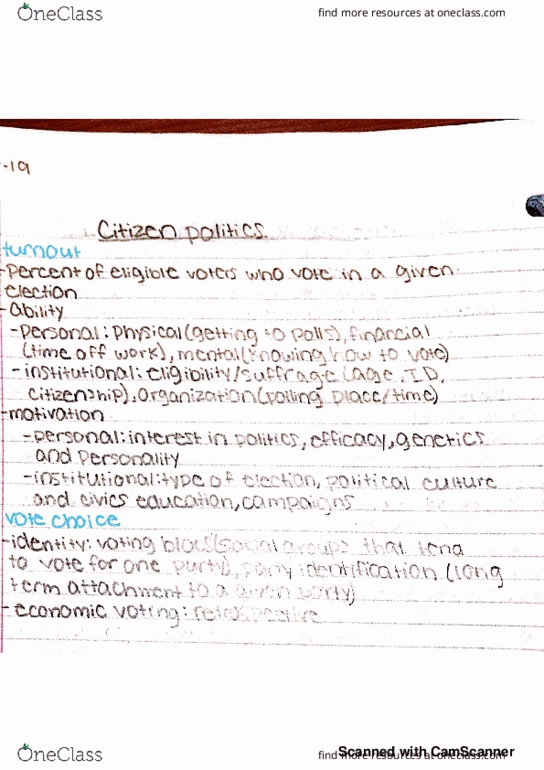 OneClass
find more resources at oneclass.com
-19
Citizen politics
turnout
-percent of eligible voters who vote in a given
election
-ability
-personal: physical(getting to polls), financial
(time off work), mental(knowing how to vote)
-institutional: eligibility/suffrage (age, ID,
citizenship), organization(polling place/time)
-motivation
-personal: interest in politics, efficacy, genetics
and personality
-institutional: type of election, political culture
and civics education, campaigns
vote choice
-identity: voting blocs(social groups that tend
to vote for one party), party identification (long
term attachment to a given party)
-economic voting: retrospective
OneClass
find more resources at oneclass.com
Scanned with CamScanner